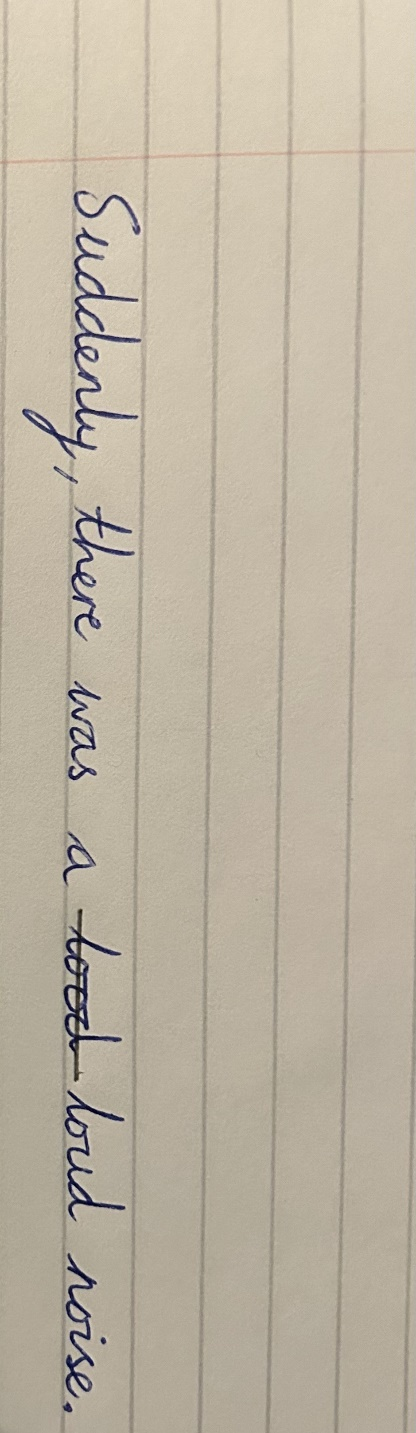 Suddenly, there was a ~~lood~~ loud noise.